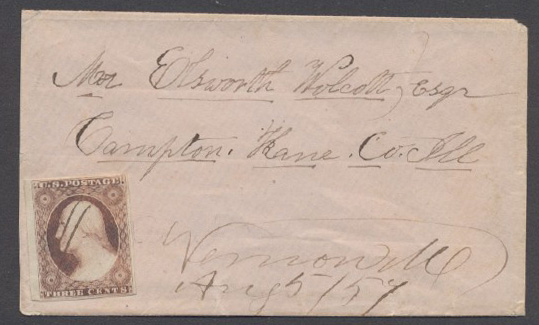 Mr Elsworth Wolcott, Esqr
Campton. Kane. Co. Ill
U.S. POSTAGE.
THREE CENTS
Vernon Ill
Aug 5/57